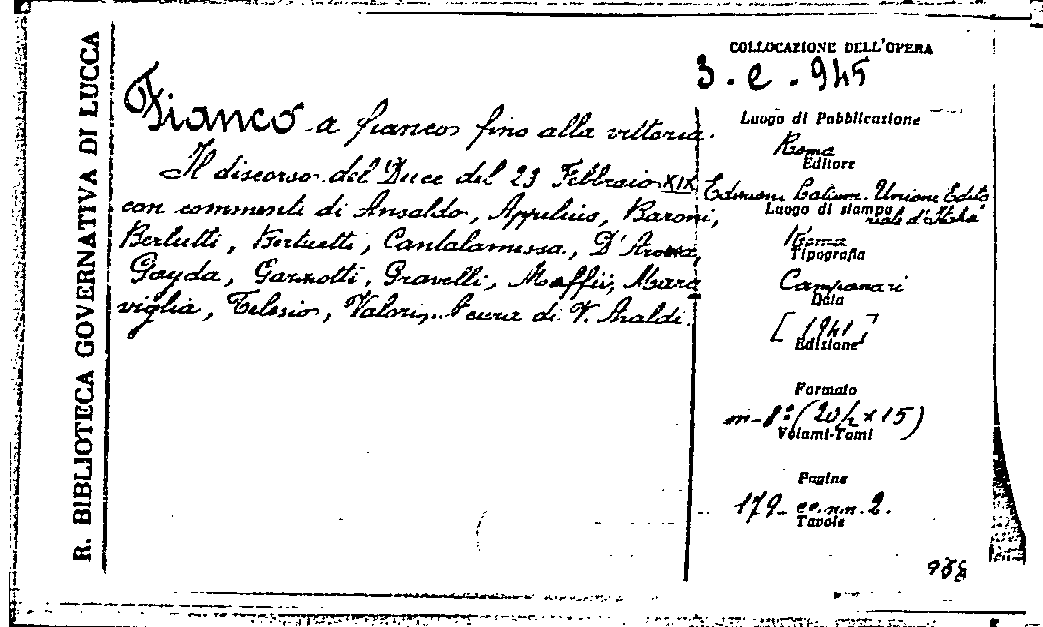 R. BIBLIOTECA GOVERNATIVA DI LUCCA
Fianco a fianco fino alla vittoria.
Il discorso del Duce del 23 Febbraio XIX
con commenti di Ansaldo, Appelius, Baroni,
Berlutti, Bertuetti, Cantalamessa, D'Aroma,
Gayda, Gazzotti, Gravelli, Maffii, Mara
viglia, Telesio, Valori, A cura di V. Araldi.
COLLOCAZIONE DELL'OPERA
3.e.945
Luogo di Pubblicazione
Roma
Editore
Edizioni Latium. Unione Edito
riale d'Italia
Luogo di stampa
Roma
Tipografia
Campanari
Data
[1941]
Edizione
Formato
in-8° (20½ x 15)
Volumi-Tomi
Pagine
179 - cc. nn. 2.
Tavole